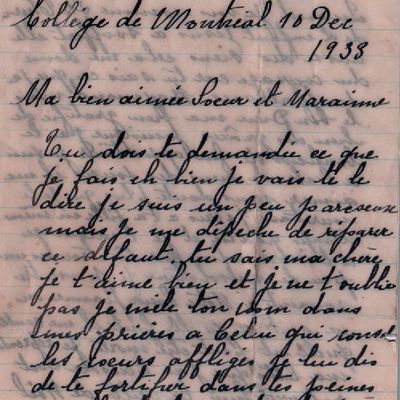 Collège de Montréal 10 Dec
1933
Ma bien aimée Soeur et Marainne
Tu dois te demandée ce que
je fais eh bien je vais te le
dire je suis un peu pareseuse
mais je me dépeche de réparer
ce défaut. tu sais ma chère
je t'aime bien et je ne t'oublie
pas je mèle ton nom dans
mes prières a Celui qui consol
les coeurs affligés je lui dis
de te fortifier dans tes peines